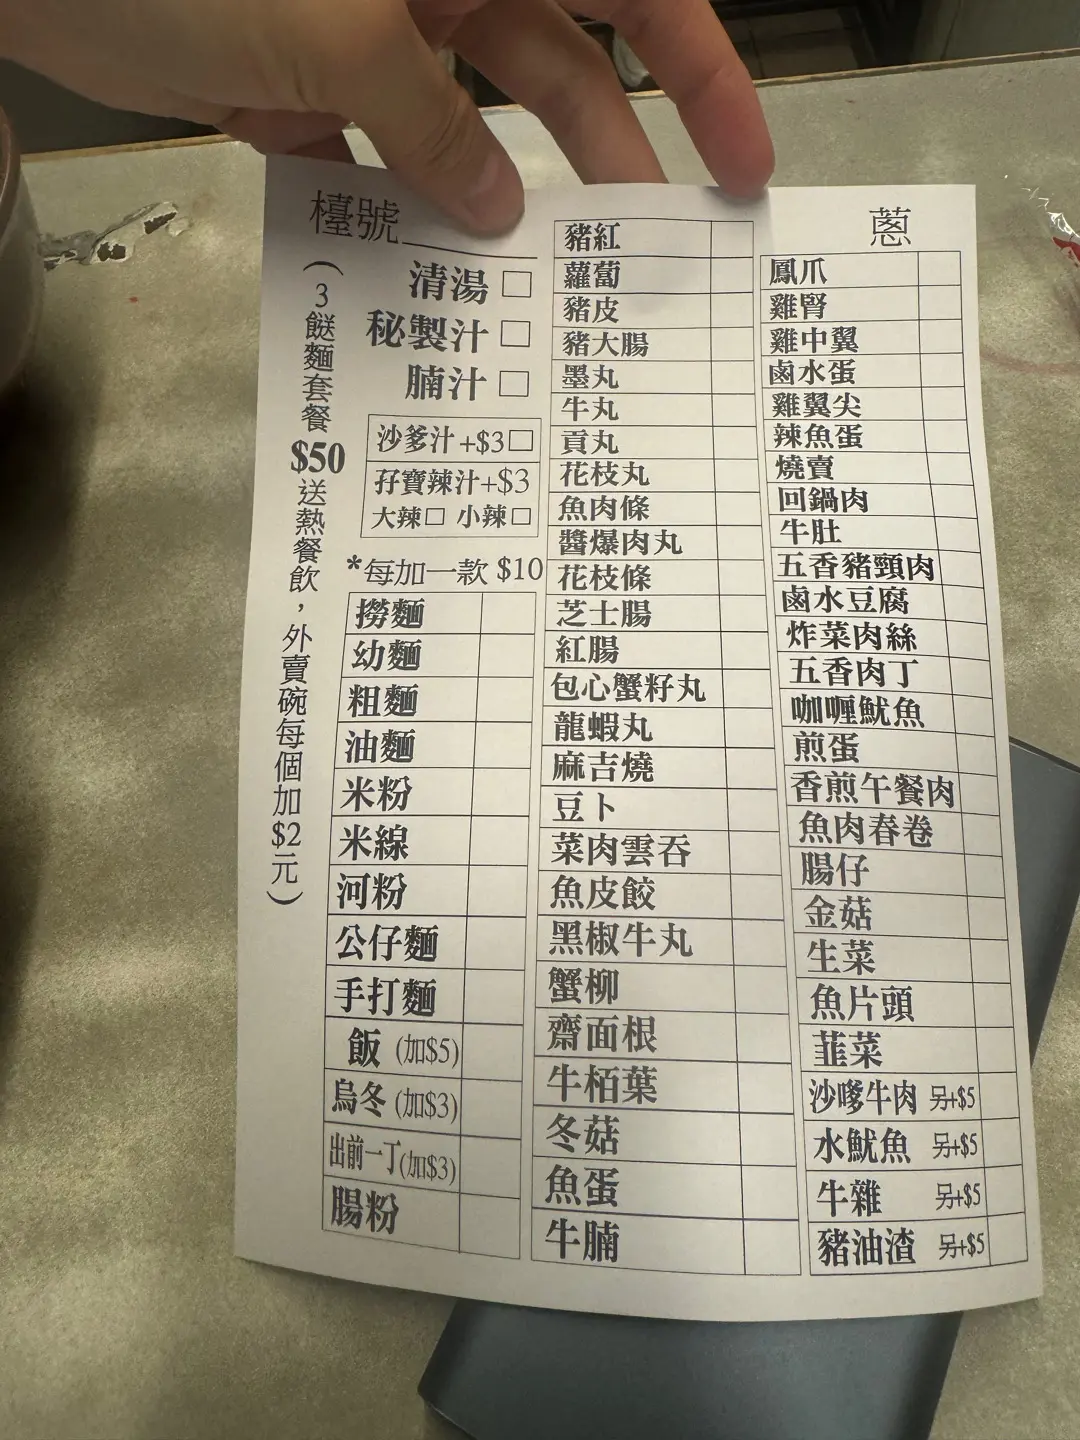 檯號
清湯 □
秘製汁 □
腩汁 □
(3餸麵套餐$50送熱餐飲，外賣碗每個加$2元)
沙爹汁+$3□
孖寶辣汁+$3
大辣□ 小辣□
*每加一款 $10
撈麵
幼麵
粗麵
油麵
米粉
米線
河粉
公仔麵
手打麵
飯 (加$5)
烏冬 (加$3)
出前一丁(加$3)
腸粉
豬紅
蘿蔔
豬皮
豬大腸
墨丸
牛丸
貢丸
花枝丸
魚肉條
醬爆肉丸
花枝條
芝士腸
紅腸
包心蟹籽丸
龍蝦丸
麻吉燒
豆卜
菜肉雲吞
魚皮餃
黑椒牛丸
蟹柳
齋面根
牛栢葉
冬菇
魚蛋
牛腩
蔥
鳳爪
雞腎
雞中翼
鹵水蛋
雞翼尖
辣魚蛋
燒賣
回鍋肉
牛肚
五香豬頸肉
鹵水豆腐
炸菜肉絲
五香肉丁
咖喱魷魚
煎蛋
香煎午餐肉
魚肉春卷
腸仔
金菇
生菜
魚片頭
韮菜
沙嗲牛肉 另+$5
水魷魚 另+$5
牛雜 另+$5
豬油渣 另+$5